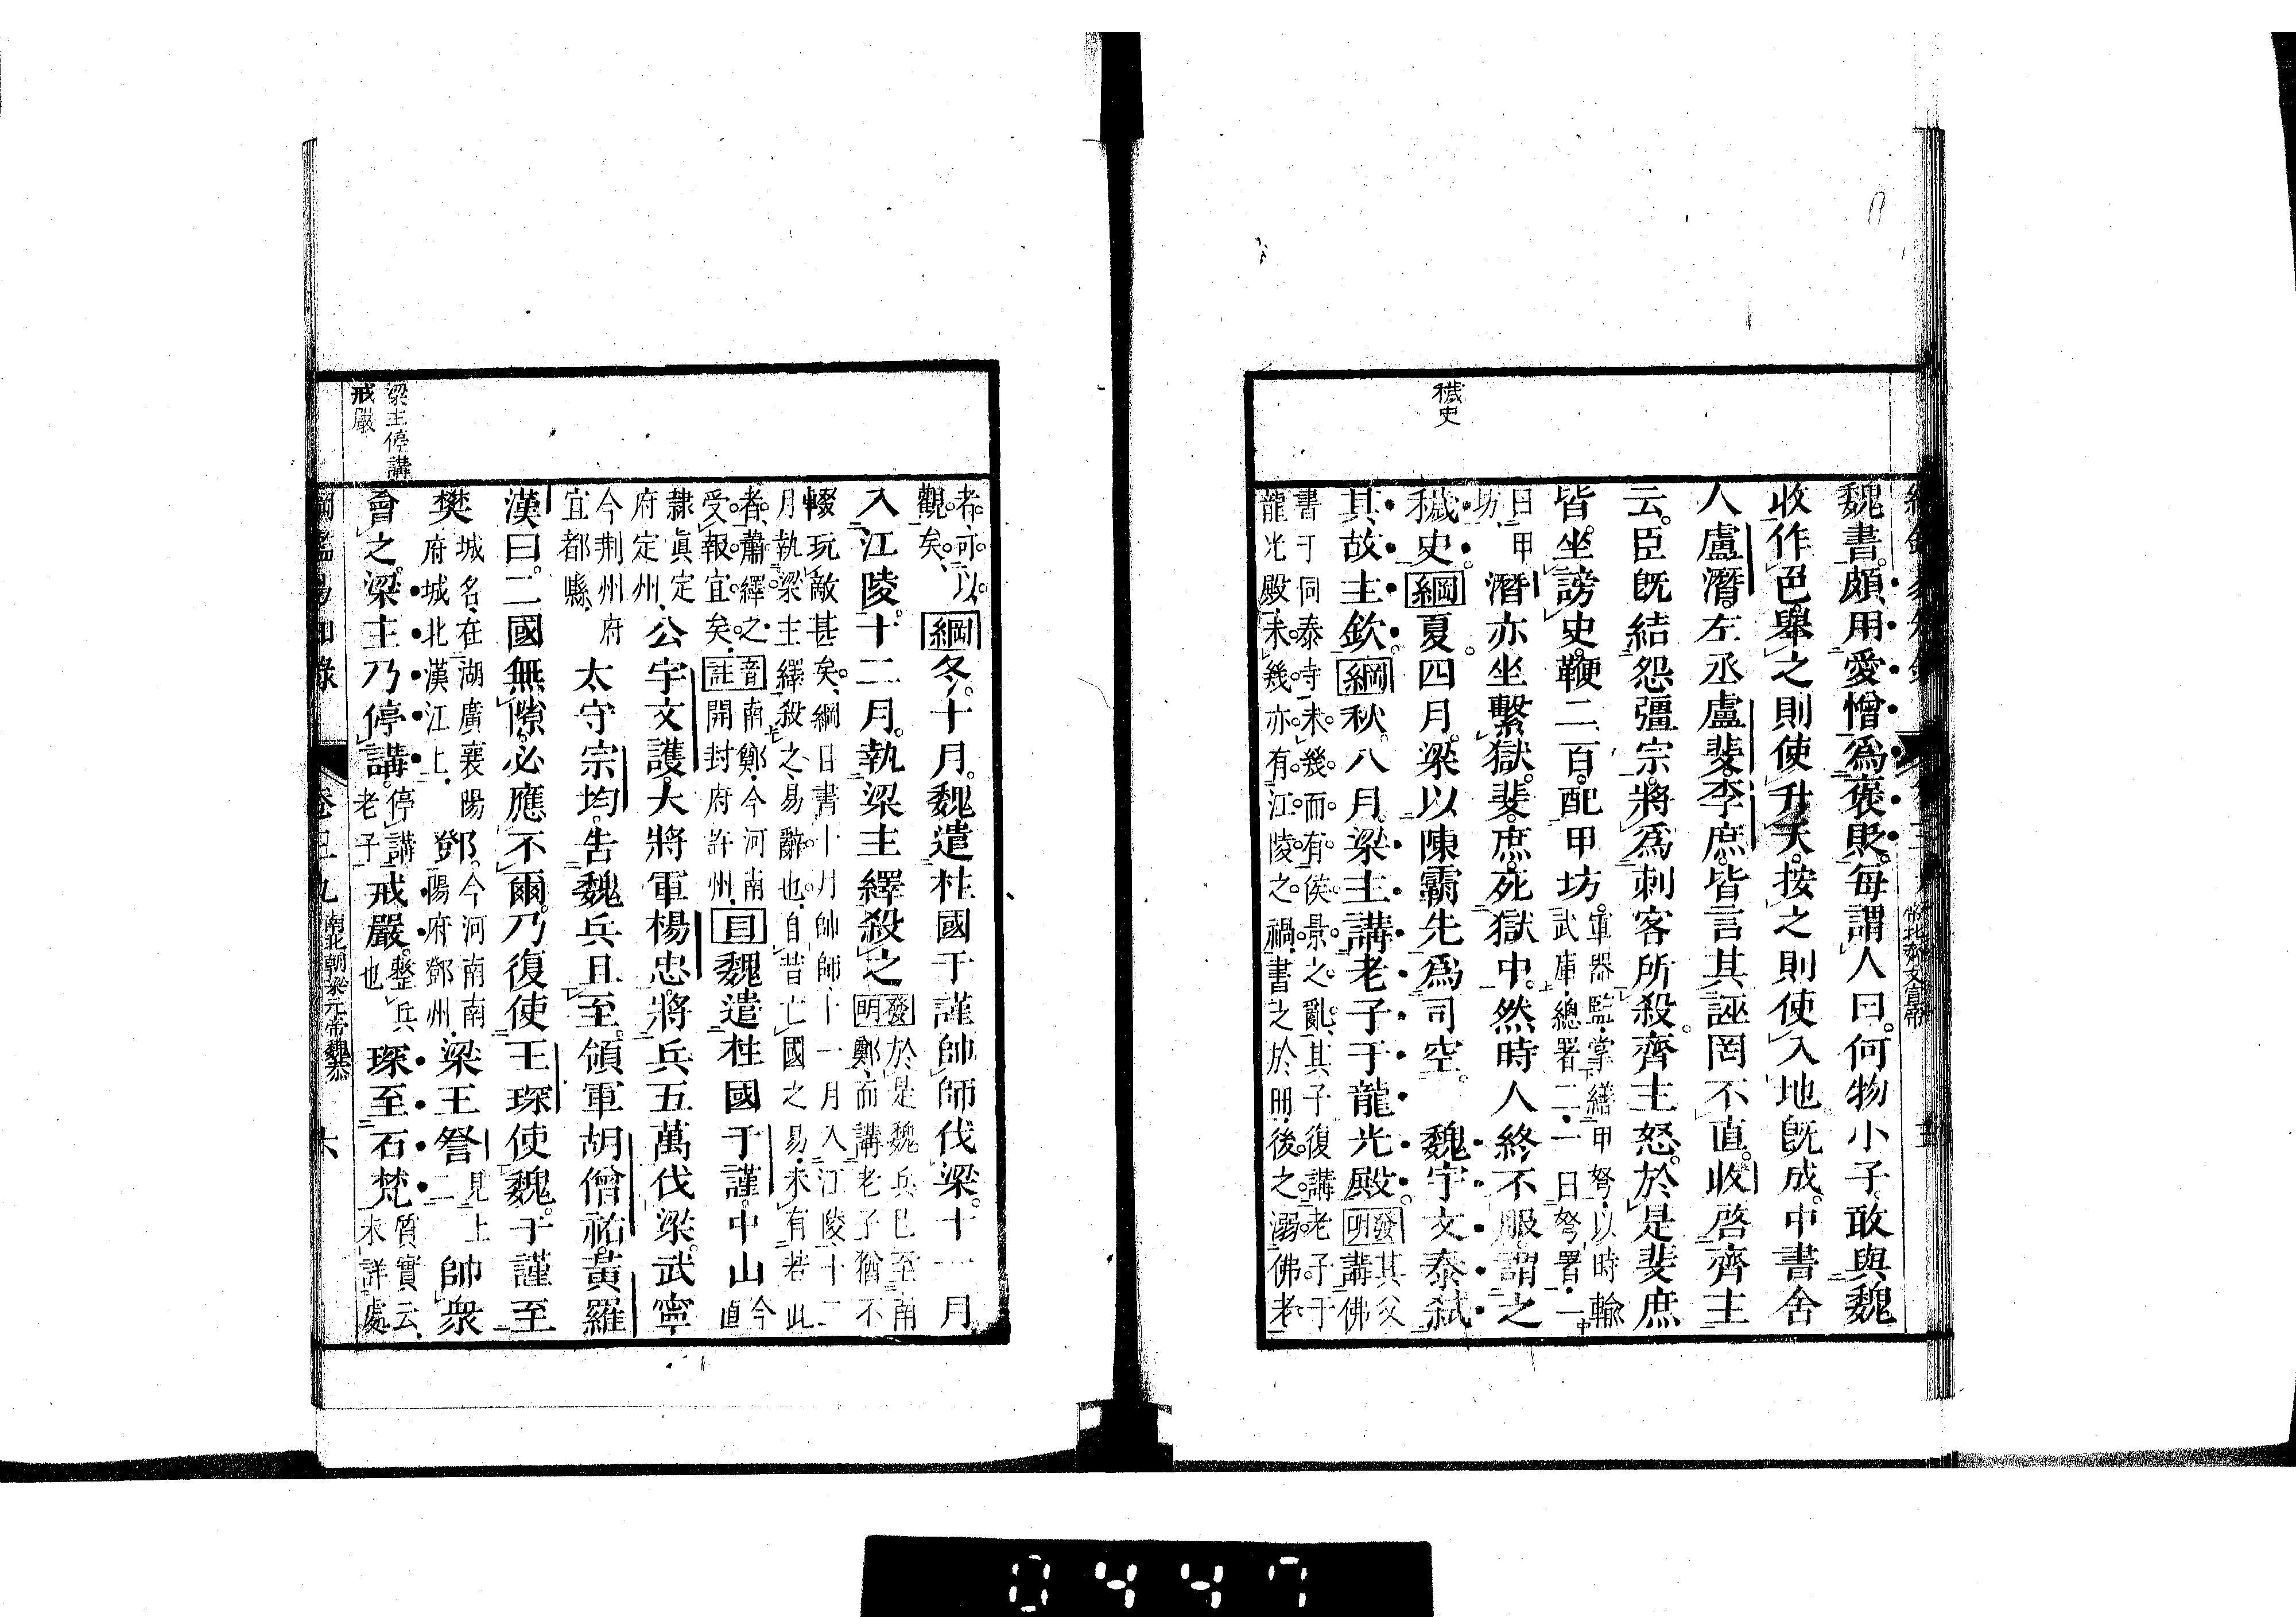 穢史
魏書。頗用愛憎爲褒貶。每謂人曰。何物小子。敢與魏
收作色。舉之則使升天。按之則使入地。旣成。中書舍
人盧潛。左丞盧斐。李庶。皆言其誣罔不直。收啓齊主
云。臣旣結怨彊宗。將爲刺客所殺。齊主怒。於是斐庶
皆坐謗史。鞭二百。配甲坊。
軍器監。掌繕甲弩。以時輸
武庫。總署二。一曰弩署。一
曰甲
坊
潛亦坐繫獄。斐庶死獄中。然時人終不服。謂之
穢史。綱夏四月。梁以陳霸先爲司空。 魏宇文泰弑
其故主欽。綱秋八月。梁主講老子于龍光殿。
發明
其父
講佛
書于同泰寺。未幾而有侯景之亂。其子復講老子于
龍光殿。未幾亦有江陵之禍。書之於冊。後之溺佛老
者。可以
觀矣。
綱冬十月。魏遣柱國于謹帥師伐梁。十一月
入江陵。十二月。執梁主繹殺之
發明
於是魏兵已至南
鄭。而講老子猶不
輟。玩敵甚矣。綱目書十月帥師。十一月入江陵。十二
月執梁主繹殺之。易辭也。自昔亡國之易。未有若此
者。蕭繹之
受報宜矣。
音註
南鄭。今河南
開封府許州。
目魏遣柱國于謹。中山
今
直
隸眞定
府定州。
公宇文護。大將軍楊忠。將兵五萬伐梁。武寧
今荆州府
宜都縣。
太守宗均。告魏兵且至。領軍胡僧祐。黃羅
漢曰。二國無隙。必應不爾。乃復使王琛使魏。于謹至
樊
城名。在湖廣襄陽
府城北漢江上。
鄧。
今河南南
陽府鄧州。
梁王詧
見上
二
帥衆
會之。梁主乃停講。
停講
老子
戒嚴。
整兵
也
琛至石梵
質實云。
未詳處
梁主停講
戒嚴
綱鑑易知錄
卷五九
南北朝梁元帝魏恭
六